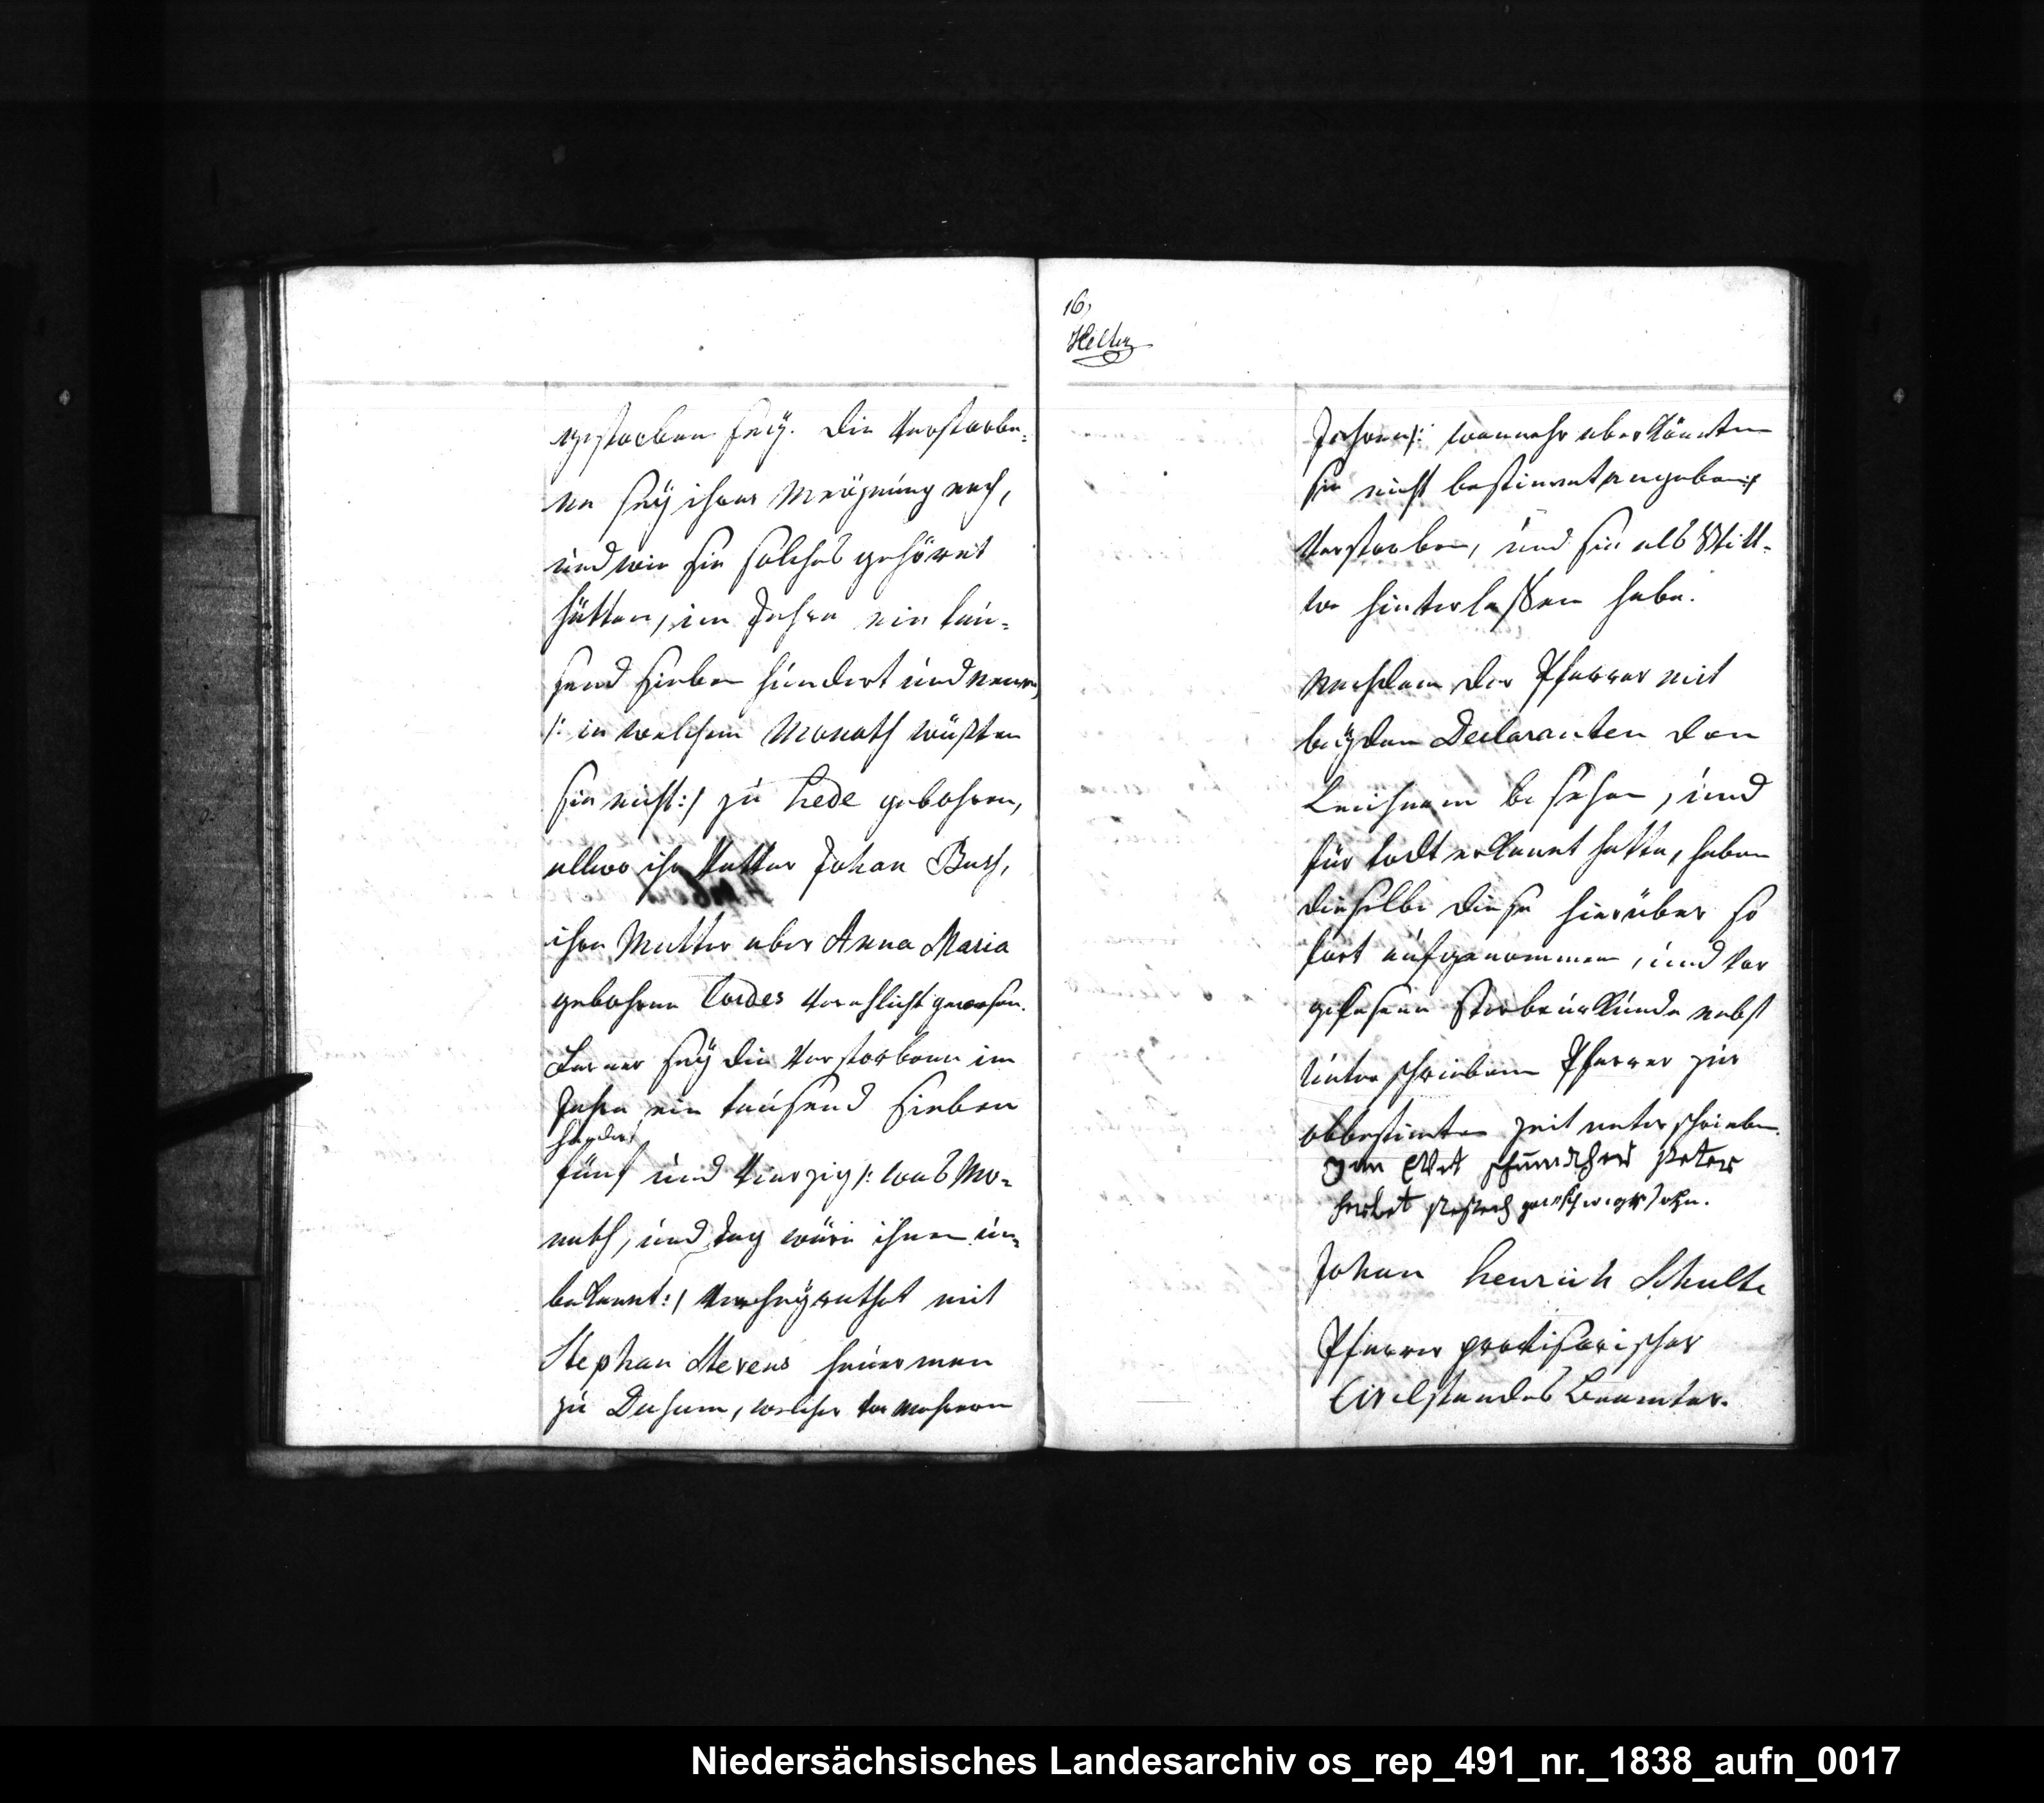 gestorben seÿ. Die Verstorbe-
ne seÿ ihrer Meÿnung nach,
und wie sie solches gehöret
hätten, im Jahre ein tau-
send sieben hundert und neun,
/: in welchem Monath wüßten
sie nicht :/ zu Hede gebohren,
allwo ihr Vatter Johan Busch,
ihre Mutter aber Anna Maria
gebohrne Cordes verehlicht gewesen.
Ferner seÿ die Verstorbene im
Jahre ein tausend sieben
hundert
fünf und vierzig /: was Mo-
nath, und Tag wäre ihnen un-
bekannt :/ verheÿrathet mit
Stephan Stevens Heuerman
zu Dersum, welcher vor mehrern
16,
Jahren /: wannehr aber könnten
sie nicht bestimmt angeben :/
Verstorben, und sie als Witt-
we hinterlaßen habe.
Nachdem der Pfarrer mit
beÿden Declaranten den
Leichnam besehen, und
für todt erkannt hatte, haben
dieselbe diese hierüber so
fort aufgenommen, und vor
gelesene Sterbeurkunde nebst
Unterschriebenem Pfarrer zur
obbestimten Zeit unterschrieben.
Peter
Johan Henrich Schulte
Pfarrer provisorischer
Civilstandes Beamter.
Niedersächsisches Landesarchiv os_rep_491_nr._1838_aufn_0017